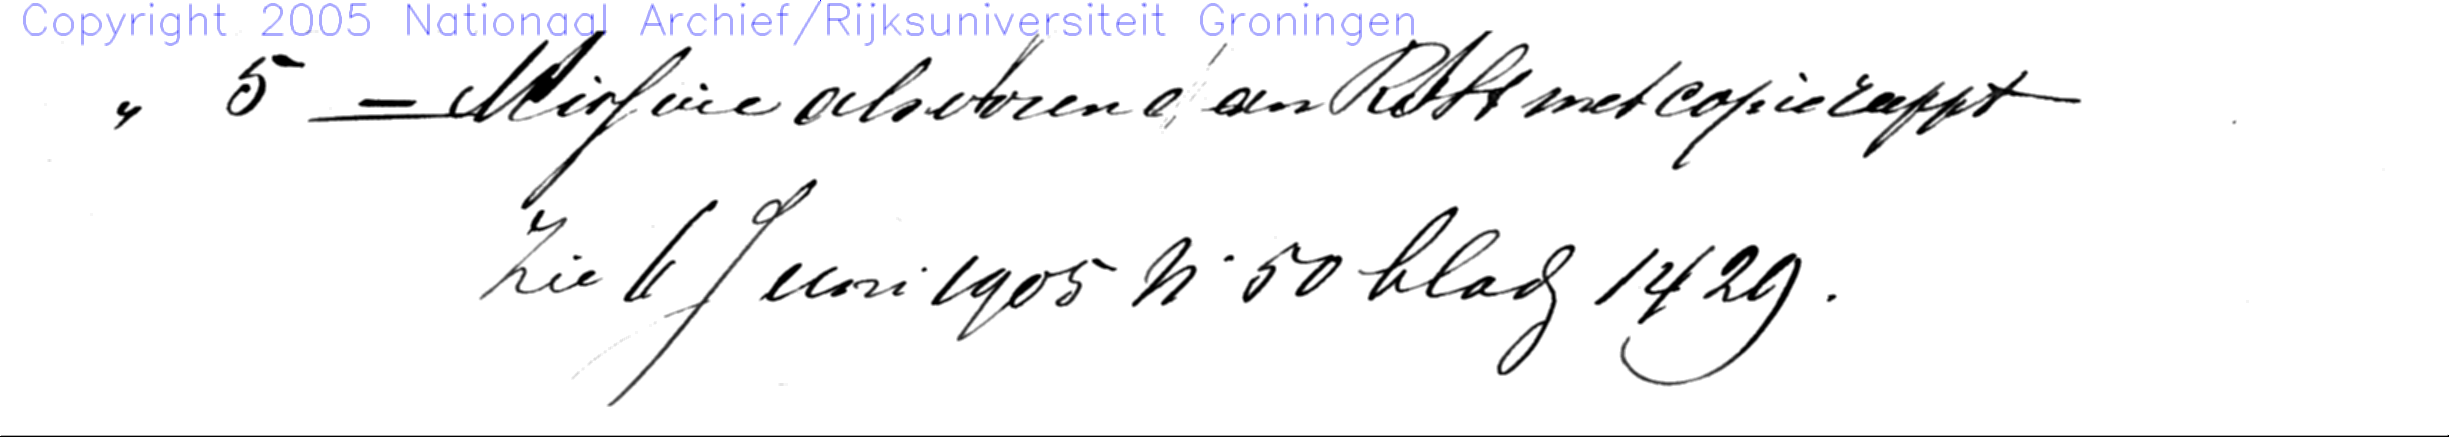 Copyright 2005 Nationaal Archief/Rijksuniversiteit Groningen
„ 5 — Missive alsvoren aan met copie rappt
Zie 6 Juni 1905 N. 50 bladz 1429.